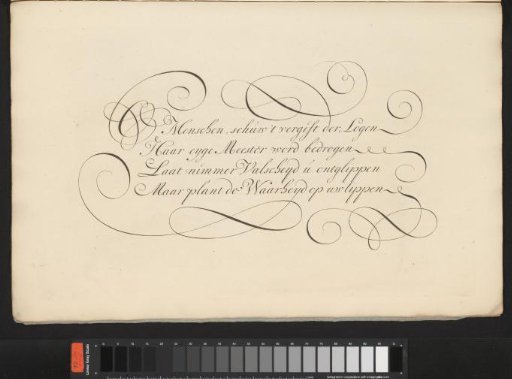 Menschen, schüw 't vergift der Logen
Haar eyge Meester word bedrogen
Laat nimmer Valscheyd ú ontglippen
Maar plant de Waarheyd op uw lippen